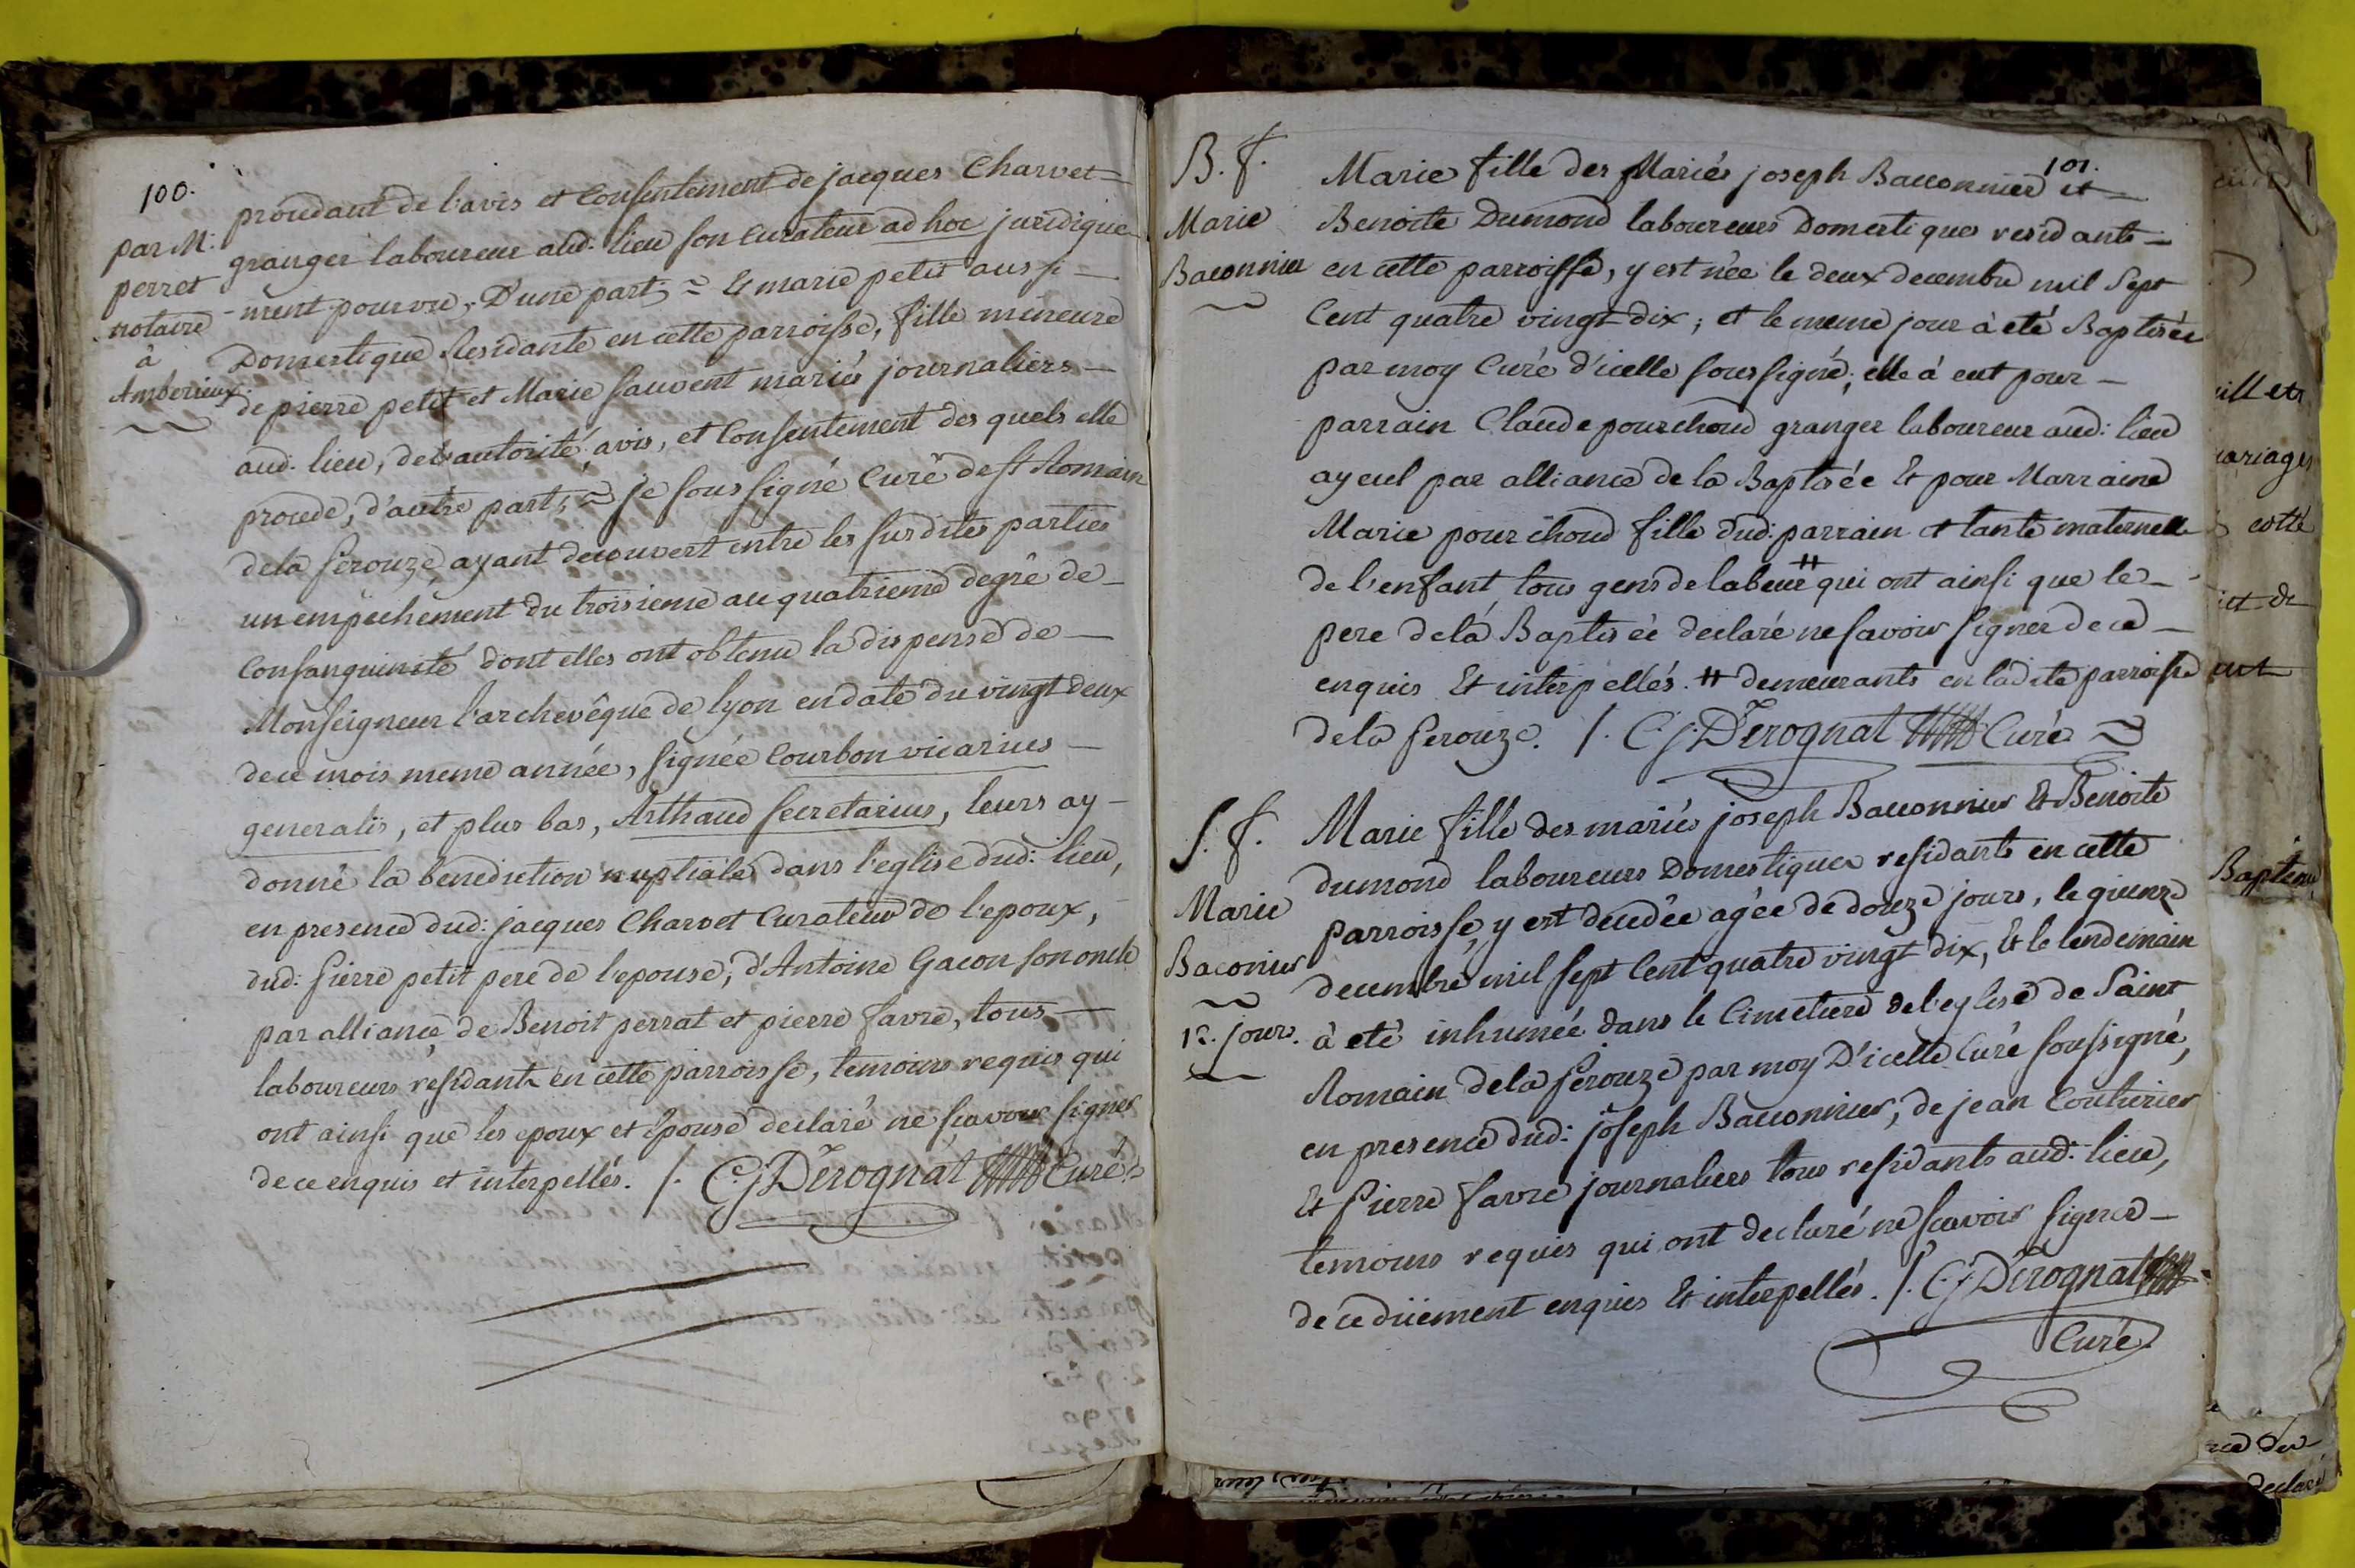 100.
par M:
perret
notaire
à
Amberieux
procedant de l'avis et Consentement de jacques Charvet
granger laboureur aud: lieu son curateur ad hoc juridique
-ment pourvu, D'une part; = Et marie petit aussi
Domestique Residante en cette parroisse, fille mineure
de pierre petit et Marie Sauvent mariés journaliers
aud. lieu, de l'autorité, avis, et Consentement des quels elle
procede, d'autre part; = je sous signé Curé de st Romain
de la ferouze, ayant decouvert entre les susdites parties
un empechement du troisieme au quatrieme degré de
Consanguinité dont elles ont obtenu la dispense de
Monseigneur l'archevêque de lyon en date du vingt deux
de ce mois meme année, signée Courbon vicarius
generalis, et plus bas, Arthaud secretarius, leurs ay
donné la benediction nuptiale dans l'eglise dud: lieu,
en presence dud: jacques Charvet Curateur de l'epoux,
dud: Pierre petit pere de l'epouse, d'Antoine Gacon son oncle
par alliance de Benoit perrat et pierre favre, tous
laboureurs residants en cette parroisse, temoins requis qui
ont ainsi que les epoux et Epouse declaré ne sçavoir signer
de ce enquis et interpellés. /. C. j. Derognat Curé
101.
B. f.
Marie
Baconnier
Marie fille des Mariés joseph Bacconnier et
Benoite Dumond laboureurs Domestiques residants
en cette parroisse, y est née le deux decembre mil Sept
Cent quatre vingt dix; et le meme jour à eté Baptisée
par moy Curé d'icelle sous signé; elle à eut pour
parrain Claude pourchoud granger laboureur aud: lieu
ayeul par alliance de la Baptisée Et pour Marraine
Marie pourchoud fille dud: parrain et tante maternelle
de l'enfant tous gens de labeur # qui ont ainsi que le
pere de la Baptisée declaré ne savoir signer de ce
enquis Et interpellés. # demeurants en ladite parroisse
de la ferouze. /. C. j. Derognat Curé
S. f.
Marie
Baconier
12. jours.
Marie fille des mariés joseph Bacconnier Et Benoite
dumond laboureurs Domestiques residants en cette
parroisse, y est decedée agée de douze jours, le quinze
decembre mil sept Cent quatre vingt dix, Et le lendemain
à eté inhumée dans le Cimetiere de l'eglise de Saint
Romain de la ferouze par moy D'icelle Curé soussigné,
en presence dud: joseph Bacconnier, de jean Couturier
Et Pierre favre journaliers tous residants aud: lieu,
temoins requis qui ont declaré ne sçavoir signer
de ce düement enquis Et interpellés. /. C. j. Derognat
Curé